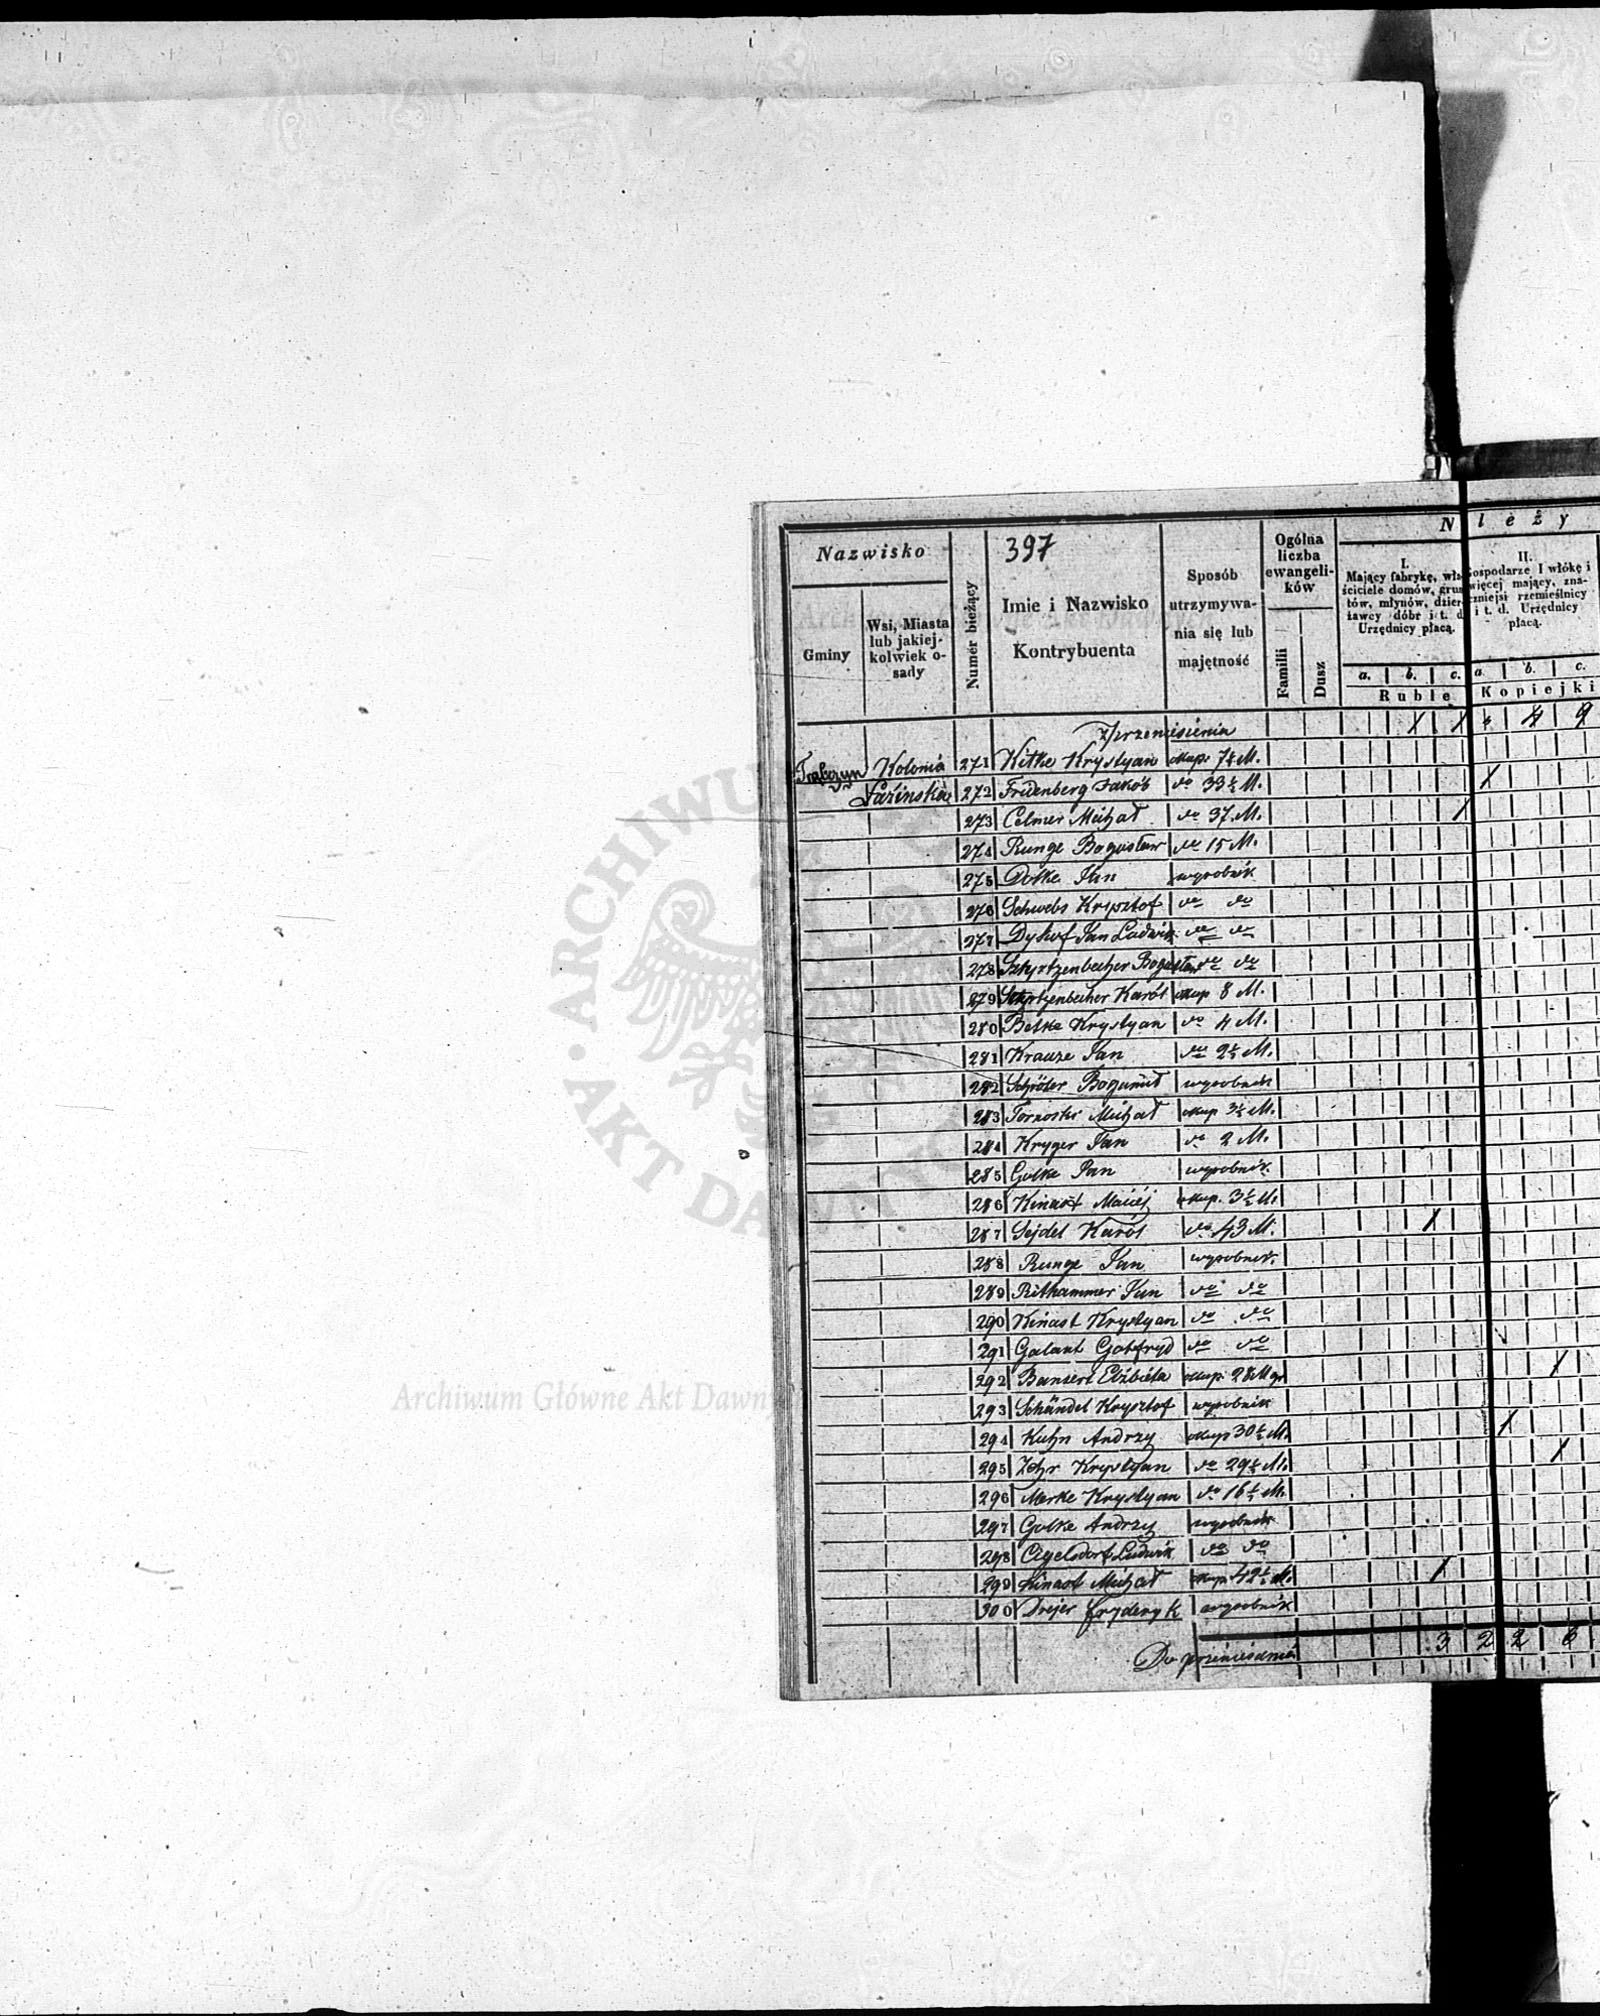 Nazwisko
Gminy
Wsi, Miasta
lub jakiej-
kolwiek o-
sady
Numer bieżący
397
Imie i Nazwisko
Kontrybuenta
Sposób
utrzymywa-
nia się lub
majętność
Ogólna
liczba
ewangeli-
ków
Familii
Dusz
N leży
I.
Mający fabrykę, wła-
ściciele domów, grun-
tów, młynów, dzier-
żawcy dóbr i t. d.
Urzędnicy płacą.
II.
ospodarze I włókę i
więcej mający, zna-
czniejsi rzemieślnicy
i t. d. Urzędnicy
płacą.
a. b. c. a b. c.
Ruble Kopiejki
Z przeniesienia 1 1 4 4 9
Trąbczyn Kolonia 271 Kitke Krystyan okup. 7½ M.
Łazińska 272 Fridenberg Jakób do 33½ M. 1
273 Celmer Michał do 37. M. 1
274 Runge Bogusław do 15 M.
275 Dolke Jan wyrobnik
276 Schwebs Krysztof do do
277 Dykof Jan Ludwik do do
278 Sztyrtzenbecher Bogusław do do
279 Sztyrtzenbecher Karól okup 8 M.
280 Belke Krystyan do 4 M.
281 Krauze Jan do 2½ M.
282 Schröter Bogumił wyrobnik
283 Tornoski Michał okup 3½ M.
284 Kryger Jan do 2 M.
285 Golke Jan wyrobnik.
286 Kinast Maciéj okup. 3½ M.
287 Sejdel Karól do 43 M. 1
288 Runge Jan wyrobnik.
289 Rithammer Jan do do
290 Kinast Krystyan do do
291 Galant Gotfryd do do
292 Bansert Elżbieta okup. 28 M gr 1
293 Schändel Krysztof wyrobnik
294 Kuhn Andrzy okup 30½ M. 1
295 Zehr Krystyan do 29½ M. 1
296 Merke Krystyan do 16½ M.
297 Golke Andrzy wyrobnik
298 Ludwik do do
299 Kinast Michał okup 42½ M. 1
300 Drejer Fryderyk wyrobnik
Do przeniesienia 3 2 2 6
ARCHIWUM GŁÓWNE AKT DAWNYCH
Archiwum Główne Akt Dawnych